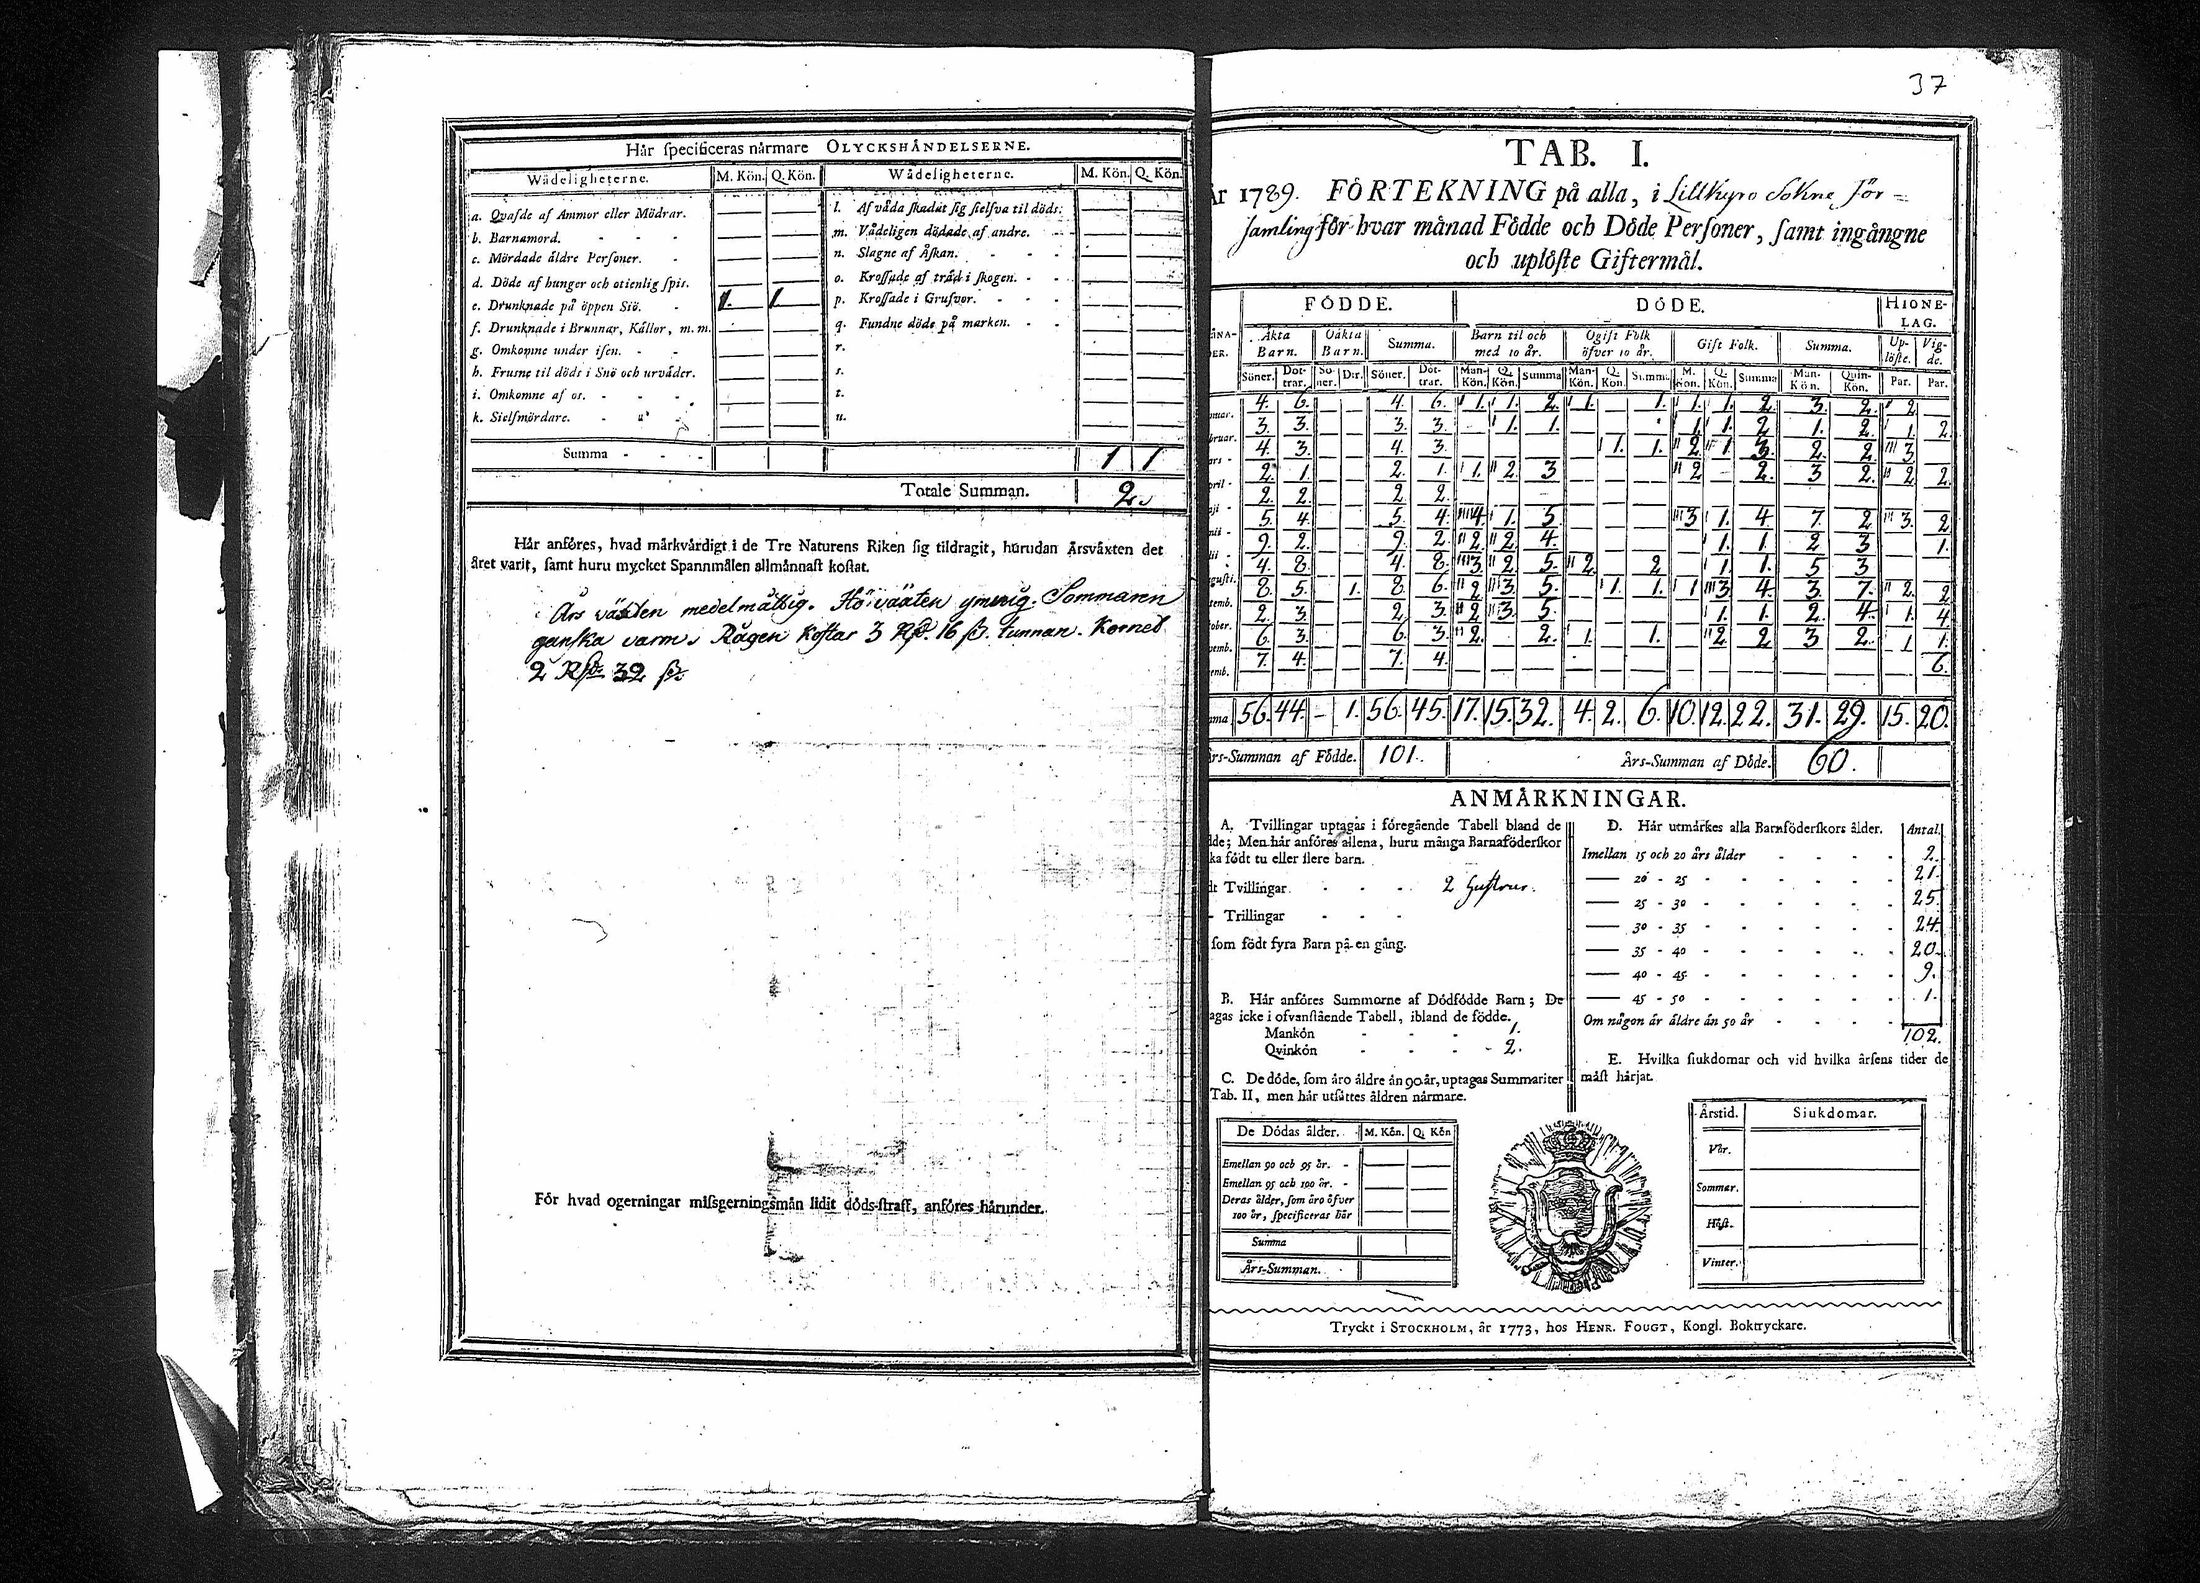 Hår specificeras nårmare OLYCKSHÅNDELSERNE.
Wådeligheterne. M. Kön. Q. Kön. Wådeligheterne. M. Kön. Q. Kön.
a. Qvafde af Ammor eller Mödrar. — —
b. Barnamord. - - - — —
c. Mördade åldre Personer. - — —
d. Döde af hunger och otienlig spis. — —
e. Drunknade på öppen Siö. - 1. 1
f. Drunknade i Brunnar, Kållor, m. m. — —
g. Omkomne under isen. - - — —
h. Frusne til döds i Snö och urväder. — —
i. Omkomne af os. - - - — —
k. Sielfmördare. - - — —
l. Af våda skadat sig sielfva til döds. — —
m. Vådeligen dödade af andre. - - — —
n. Slagne af Åskan. - - - — —
o. Krossade af tråd i skogen. - - — —
p. Krossade i Grufvor. - - - — —
q. Fundne döde på marken. - - — —
r. — —
s. — —
t. — —
u. — —
Summa - - - 1 1
Totale Summan. 2.
Hår anföres, hvad mårkvårdigt i de Tre Naturens Riken sig tildragit, hurudan Årsvåxten det
året varit, samt huru mycket Spannmålen allmånnast kostat.
Års växten medelmåttig. Hö växten ymnig. Sommaren
ganska varm. Rågen kostar 3 Rd. 16 s. tunnan. Kornet
2 Rd 32 s.
För hvad ogerningar missgerningsmån lidit döds-straff, anföres hårunder.
37
TAB. I.
År 1789. FÖRTEKNING på alla, i Lillkyro Sokne För=
samling för hvar månad Födde och Döde Personer, samt ingångne
och uplöste Giftermål.
FÖDDE. DÖDE. HIONE-
LAG.
Åkta Barn. Oåkta Barn. Summa. Barn til och med 10 år. Ogift Folk öfver 10 år. Gift Folk. Summa. Up-löste. Vig-de.
Söner. Döt-trar. Sö-ner. Dtr. Söner. Döt-trar. Man-Kön. Q. Kön. Summa Man-Kön. Q. Kön. Summa M. Kön. Q. Kön. Summa Man-Kön. Quin-Kön. Par. Par.
4. 6. — — 4. 6. 1. 1. 2. 1. — 1. 1. 1. 2. 3. 2. 2. —
3. 3. — — 3. 3. — 1. 1. — — — 1. 1. 2 1. 2. 1. 2.
4. 3. — — 4. 3. — — — — 1. 1. 2. 1. 3. 2. 2. 3. —
2. 1. — — 2. 1. 1. 2. 3 — — — 2 — 2. 3 2. 2. 2.
2. 2. — — 2. 2. — — — — — — — — — — — — —
5. 4. — — 5. 4. 4. 1. 5. — — — 3 1. 4. 7. 2. 3. 2
9. 2. — — 9. 2. 2. 2. 4. — — — — 1. 1. 2 3 — 1.
4. 8. — — 4. 8. 3. 2. 5. 2. — 2 — 1. 1. 5 3 — —
8. 5. — 1. 8. 6. 2 3. 5. — 1. 1. 1 3 4. 3. 7. 2. 2
2. 3. — — 2. 3. 2 3. 5. — — — — 1. 1. 2 4. 1. 4
6. 3. — — 6. 3. 2. — 2. 1. — 1. — 2. 2 3 2. 1 1.
7. 4. — — 7. 4. — — — — — — — — — — — — 6.
56. 44. — 1. 56. 45. 17. 15. 32. 4. 2. 6. 10. 12. 22. 31. 29. 15. 20.
Års-Summan af Födde. 101. Års-Summan af Döde. 60.
ANMÅRKNINGAR.
A. Tvillingar uptagas i föregående Tabell bland de
; Men hår anföres allena, huru många Barnaföderskor
födt tu eller flere barn.
Tvillingar. - - - 2 hustrur.
- Trillingar - - -
som födt fyra Barn på en gång.
B. Hår anföres Summorne af Dödfödde Barn; De
icke i ofvanstående Tabell, ibland de födde.
Mankön - - - 1.
Qvinkön - - - 2.
C. De döde, som åro åldre ån 90 år, uptagas Summariter
Tab. II, men hår utsåttes åldren nårmare.
De Dödas ålder. M. Kön. Q. Kön
Emellan 90 och 95 år. - — —
Emellan 95 och 100 år. - — —
Deras ålder, som åro öfver
100 år, specificeras hår — —
Summa
Års-Summan.
D. Hår utmårkes alla Barnföderskors ålder. Antal.
Imellan 15 och 20 års ålder - - - - 2.
— 20 - 25 - - - - 21.
— 25 - 30 - - - - 25.
— 30 - 35 - - - - 24.
— 35 - 40 - - - - 20.
— 40 - 45 - - - - 9.
— 45 - 50 - - - - 1.
Om någon är åldre ån 50 år - - - -
102.
E. Hvilka siukdomar och vid hvilka årsens tider de
måst hårjat.
Årstid. Siukdomar.
Vår.
Sommar.
Höst.
Vinter.
Tryckt i STOCKHOLM, år 1773, hos HENR. FOUGT, Kongl. Boktryckare.